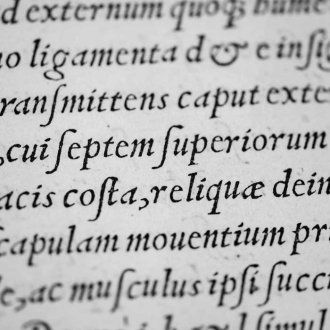 d externum quoq; hume
uo ligamenta d & e inſig
ranſmittens caput exte
,cui ſeptem ſuperiorum
acis coſta,reliquæ dein
ſcapulam mouentium pri
le,ac muſculus ipſi ſucci